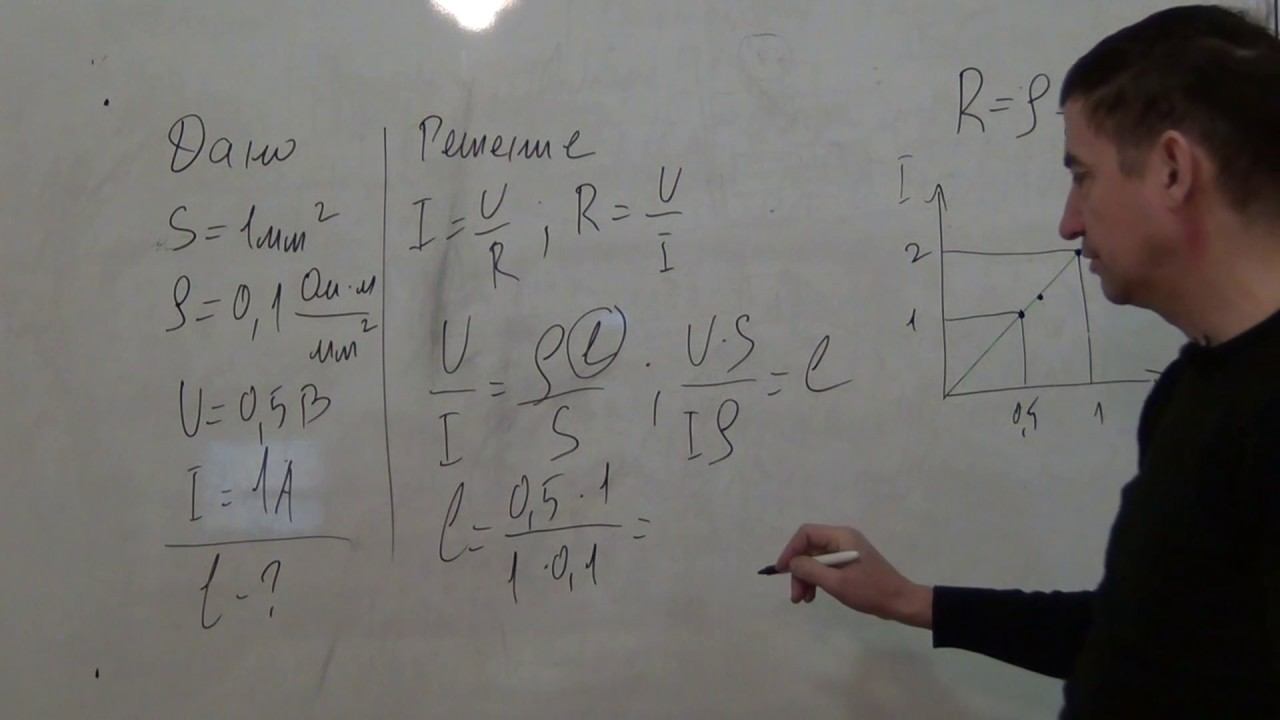 Дано
S = 1мм²
ρ = 0,1 Ом·м/мм²
U = 0,5 В
I = 1А
l - ?
Решение
I = U/R ; R = U/I
U/I = ρl/S ; U·S/Iρ = l
l = 0,5·1/1·0,1 =
R = ρ
I
2
1
0,5 1